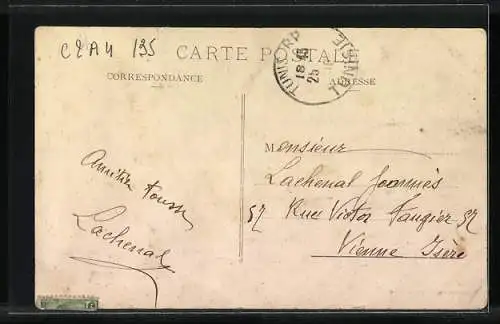 C2A4 135
CARTE POSTALE
CORRESPONDANCE
ADRESSE
TUNIS RP
18 45
25
TUNISIE
Monsieur
Lachenal Joannès
57 Rue Victor Faugier 57
Vienne Isère
Amitiés
Lachenal